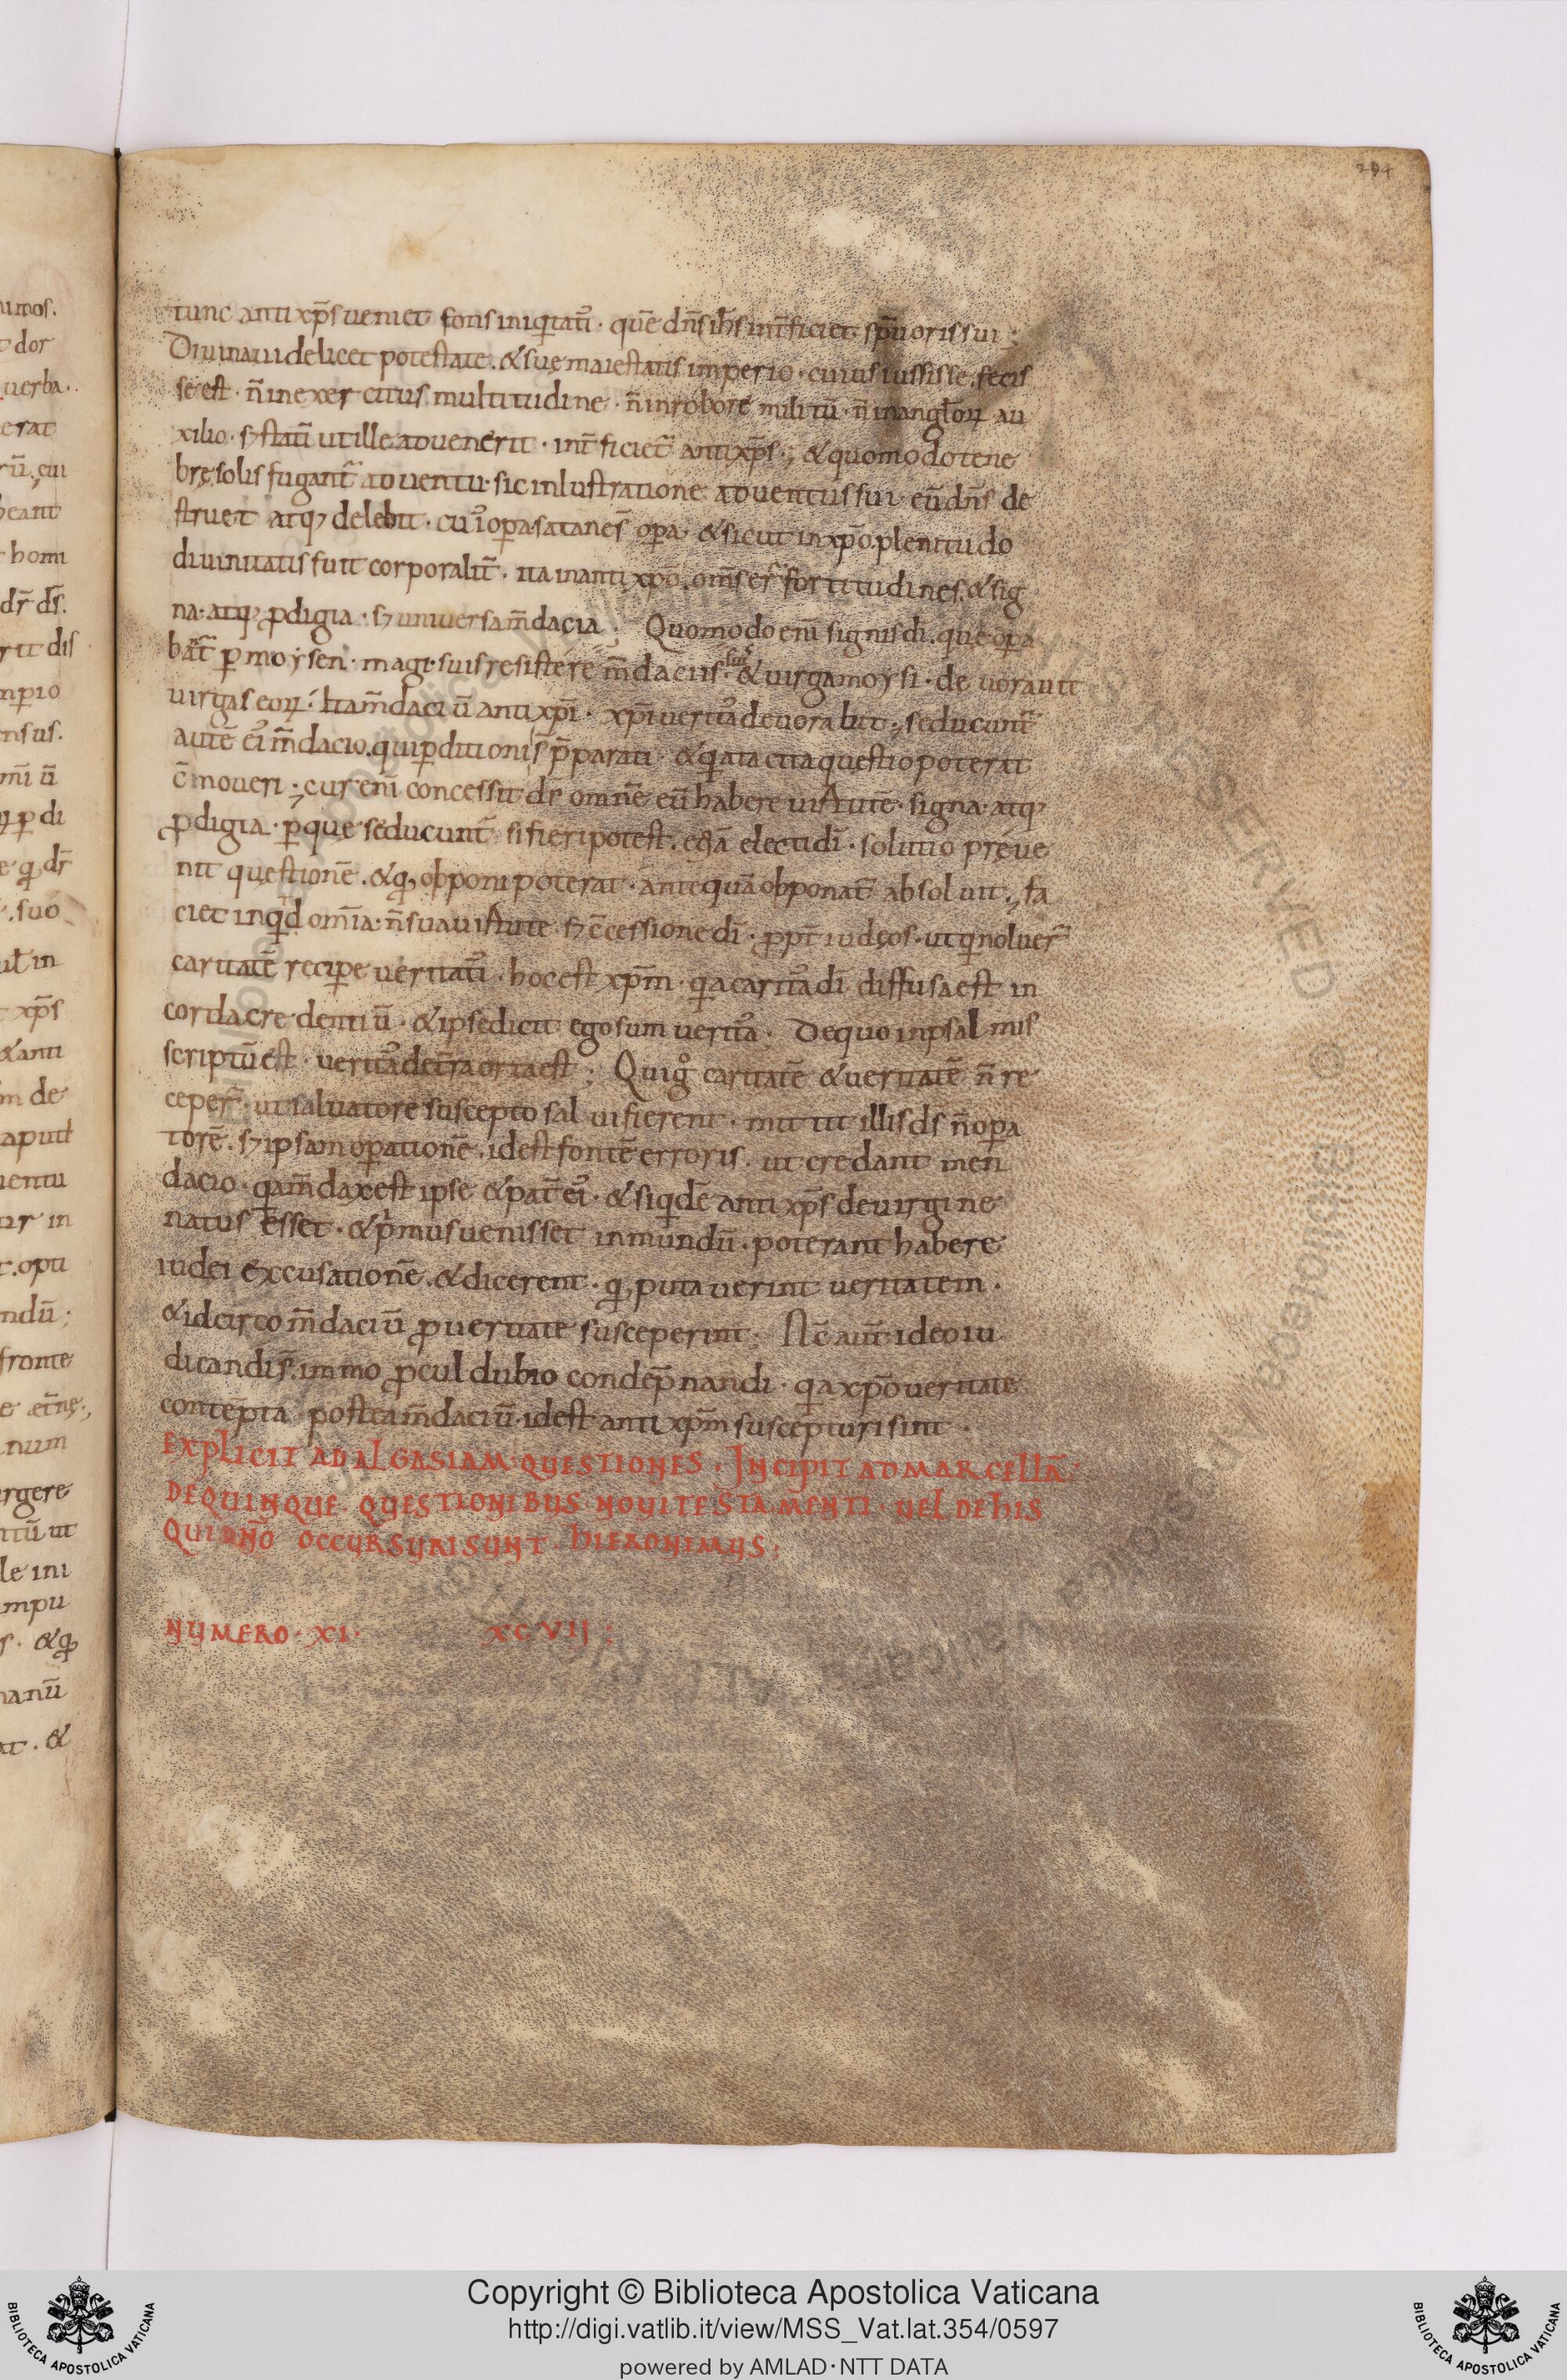 294
tunc antixp̄s ueniet fons iniq̇tati᷒ · quē dn̄s ih̄s int̄ficiet sp̄u oris sui ;
Diuina uidelicet potestate · & suę maiestatis imperio · cuius iussisse · fecis
se est · n̄ in exercitus multitudine · n̄ in robore militū · n̄ in angl̄oꝝ au
xilio · sꝫ statī ut ille aduenerit · int̄ficiet᷑ antixp̄s · ; & quomodo tene
brę solis fugant᷑ aduentu · sic inlustratione aduentus sui eū dn̄s de
struet atqꝫ delebit · cui᷒ oꝑa satanę s̄ oꝑa · & sicut in xp̄o plenitudo
diuinitatis fuit corporalit̄ · ita in antixp̄o · om̄s er᷑ fortitudines · & sig
na · atqꝫ ꝓdigia · sꝫ uniuersa m̄dacia ; Quomodo eni᷒ signis dī · que oꝑa
bat᷑ ꝑ moysen · magi · suis resistere m̄daciis · sic᷒ & uirga moysi · deuorauit
uirgas eoꝝ · Ita m̄daciū antixp̄i · xp̄i uerita᷒ deuorabit · ; seducunt᷑
autē ei᷒ m̄dacio · qui ꝑditioni s̄ p̄parati · & q̇a tacita questio poterat
c̄moueri · ; cur eni᷒ concessit ds̄ omnē eū habere uirtutē · signa · atqꝫ
ꝓdigia · ꝑ que seducunt᷑ si fieri potest · etiā electi dī · solutio pręue
nit questionē · & qď obponi poterat · anteq̄uā obponat᷑ absoluit · ; fa
ciet inq̇d om̄ia · n̄ sua uirtute · sꝫ c̄cessione dī · ꝓpt̄ iudęos · ut q̇ noluer᷑
caritatē reciꝑe ueritati᷒ · hoc est xp̄m · q̇a carita᷒ dī diffusa est in
corda credentiū · & ipse dicit ego sum uerita᷒ · De quo in psalmis
scriptū est · uerita᷒ de t̄ra orta est ; Qui g̊ caritatē & ueritatē n̄ re
ceper᷑ · ut saluatore suscepto salui fierent · mittit illis ds̄ n̄ oꝑa
torē · sꝫ ipsam oꝑationē · id est fontē erroris · ut credant men
dacio · q̇a m̄dax est ipse & pat̄ ei᷒ · & siq̇dē antixp̄s de uirgine
natus esset · & ṗmus uenisset in mundū · poterant habere
iudei excusationē · & dicerent · qď putauerint ueritatem ·
& idcirco m̄daciū ꝓ ueritate susceperint ; Nc̄ aut̄ ideo iu
dicandi s̄ · immo ꝓcul dubio condēpnandi · q̇a xp̄o ueritate
contēpta · postea m̄daciū · id est antixp̄m suscepturi sint ·
EXPLICIT AD ALGASIAM QUESTIONES · INCIPIT AD MARCELLĀ ·
DE QUINQUE QUESTIONIBUS NOUI TESTAMENTI · UEL DE HIS
QUI DN̄O OCCURSURI SUNT · HIERONIMUS ;
NUMERO · XI · XCVII ;
Copyright © Biblioteca Apostolica Vaticana
http://digi.vatlib.it/view/MSS_Vat.lat.354/0597
powered by AMLAD·NTT DATA